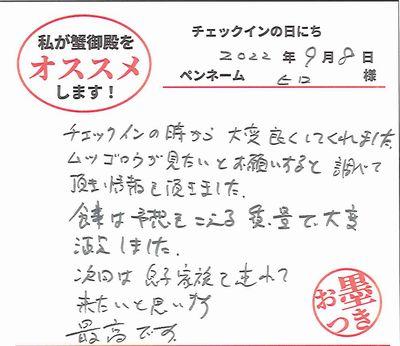 私が蟹御殿を
オススメ
します!
チェックインの日にち
2022年9月8日
ペンネーム ヒロ 様
チェックインの時から 大変良くしてくれました。
ムツゴロウが見たいとお願いすると 調べて
頂き情報を頂きました。
食事は予想をこえる質、量で、大変
満足しました。
次回は息子家族を連れて
来たいと思います
最高です。
お墨つき